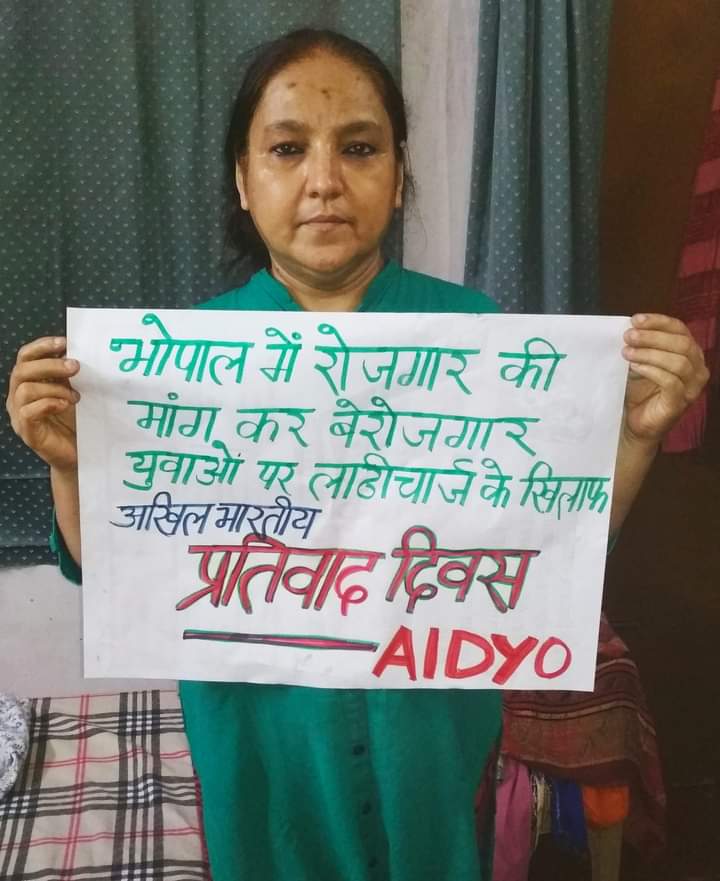 भोपाल में रोजगार की
मांग कर बेरोजगार
युवाओं पर लाठीचार्ज के खिलाफ
अखिल भारतीय
प्रतिवाद दिवस
AIDYO